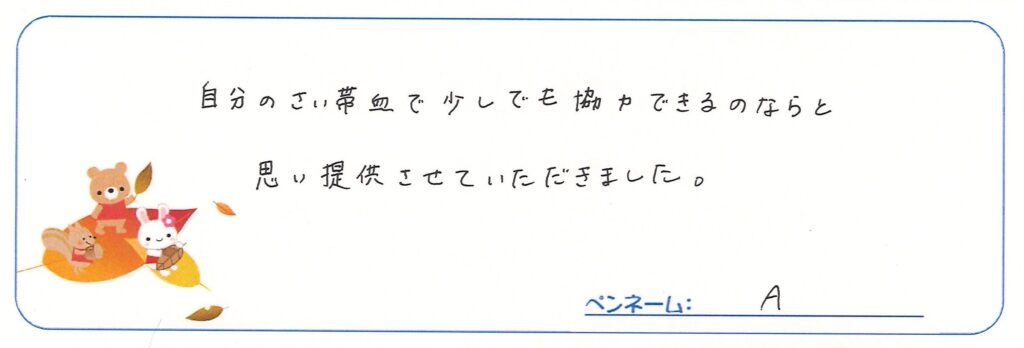 自分のさい帯血で少しでも協力できるのならと
思い提供させていただきました。
ペンネーム: A